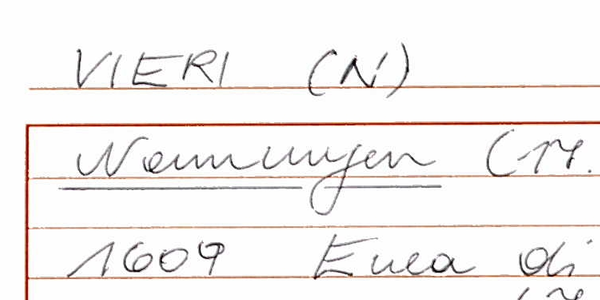 VIERI (N)
Nennungen (17.
1609 Enea di